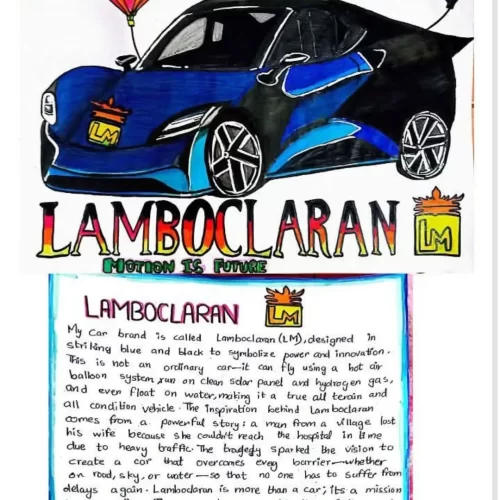 LM
LAMBOCLARAN
LM
MOTION IS FUTURE
LAMBOCLARAN
LM
My car brand is called Lamboclaran (LM), designed in
striking blue and black to symbolize power and innovation.
This is not an ordinary car—it can fly using a hot air
balloon system, run on clean solar panel and hydrogen gas,
and even float on water, making it a true all terain and
all condition vehicle. The inspiration behind Lamboclaran
comes from a powerful story: a man from a village lost
his wife because she couldn't reach the hospital in time
due to heavy traffic. The tragedy sparked the vision to
create a car that overcomes every barrier—whether
on road, sky, or water—so that no one has to suffer from
delays again. Lamboclaran is more than a car; its a mission